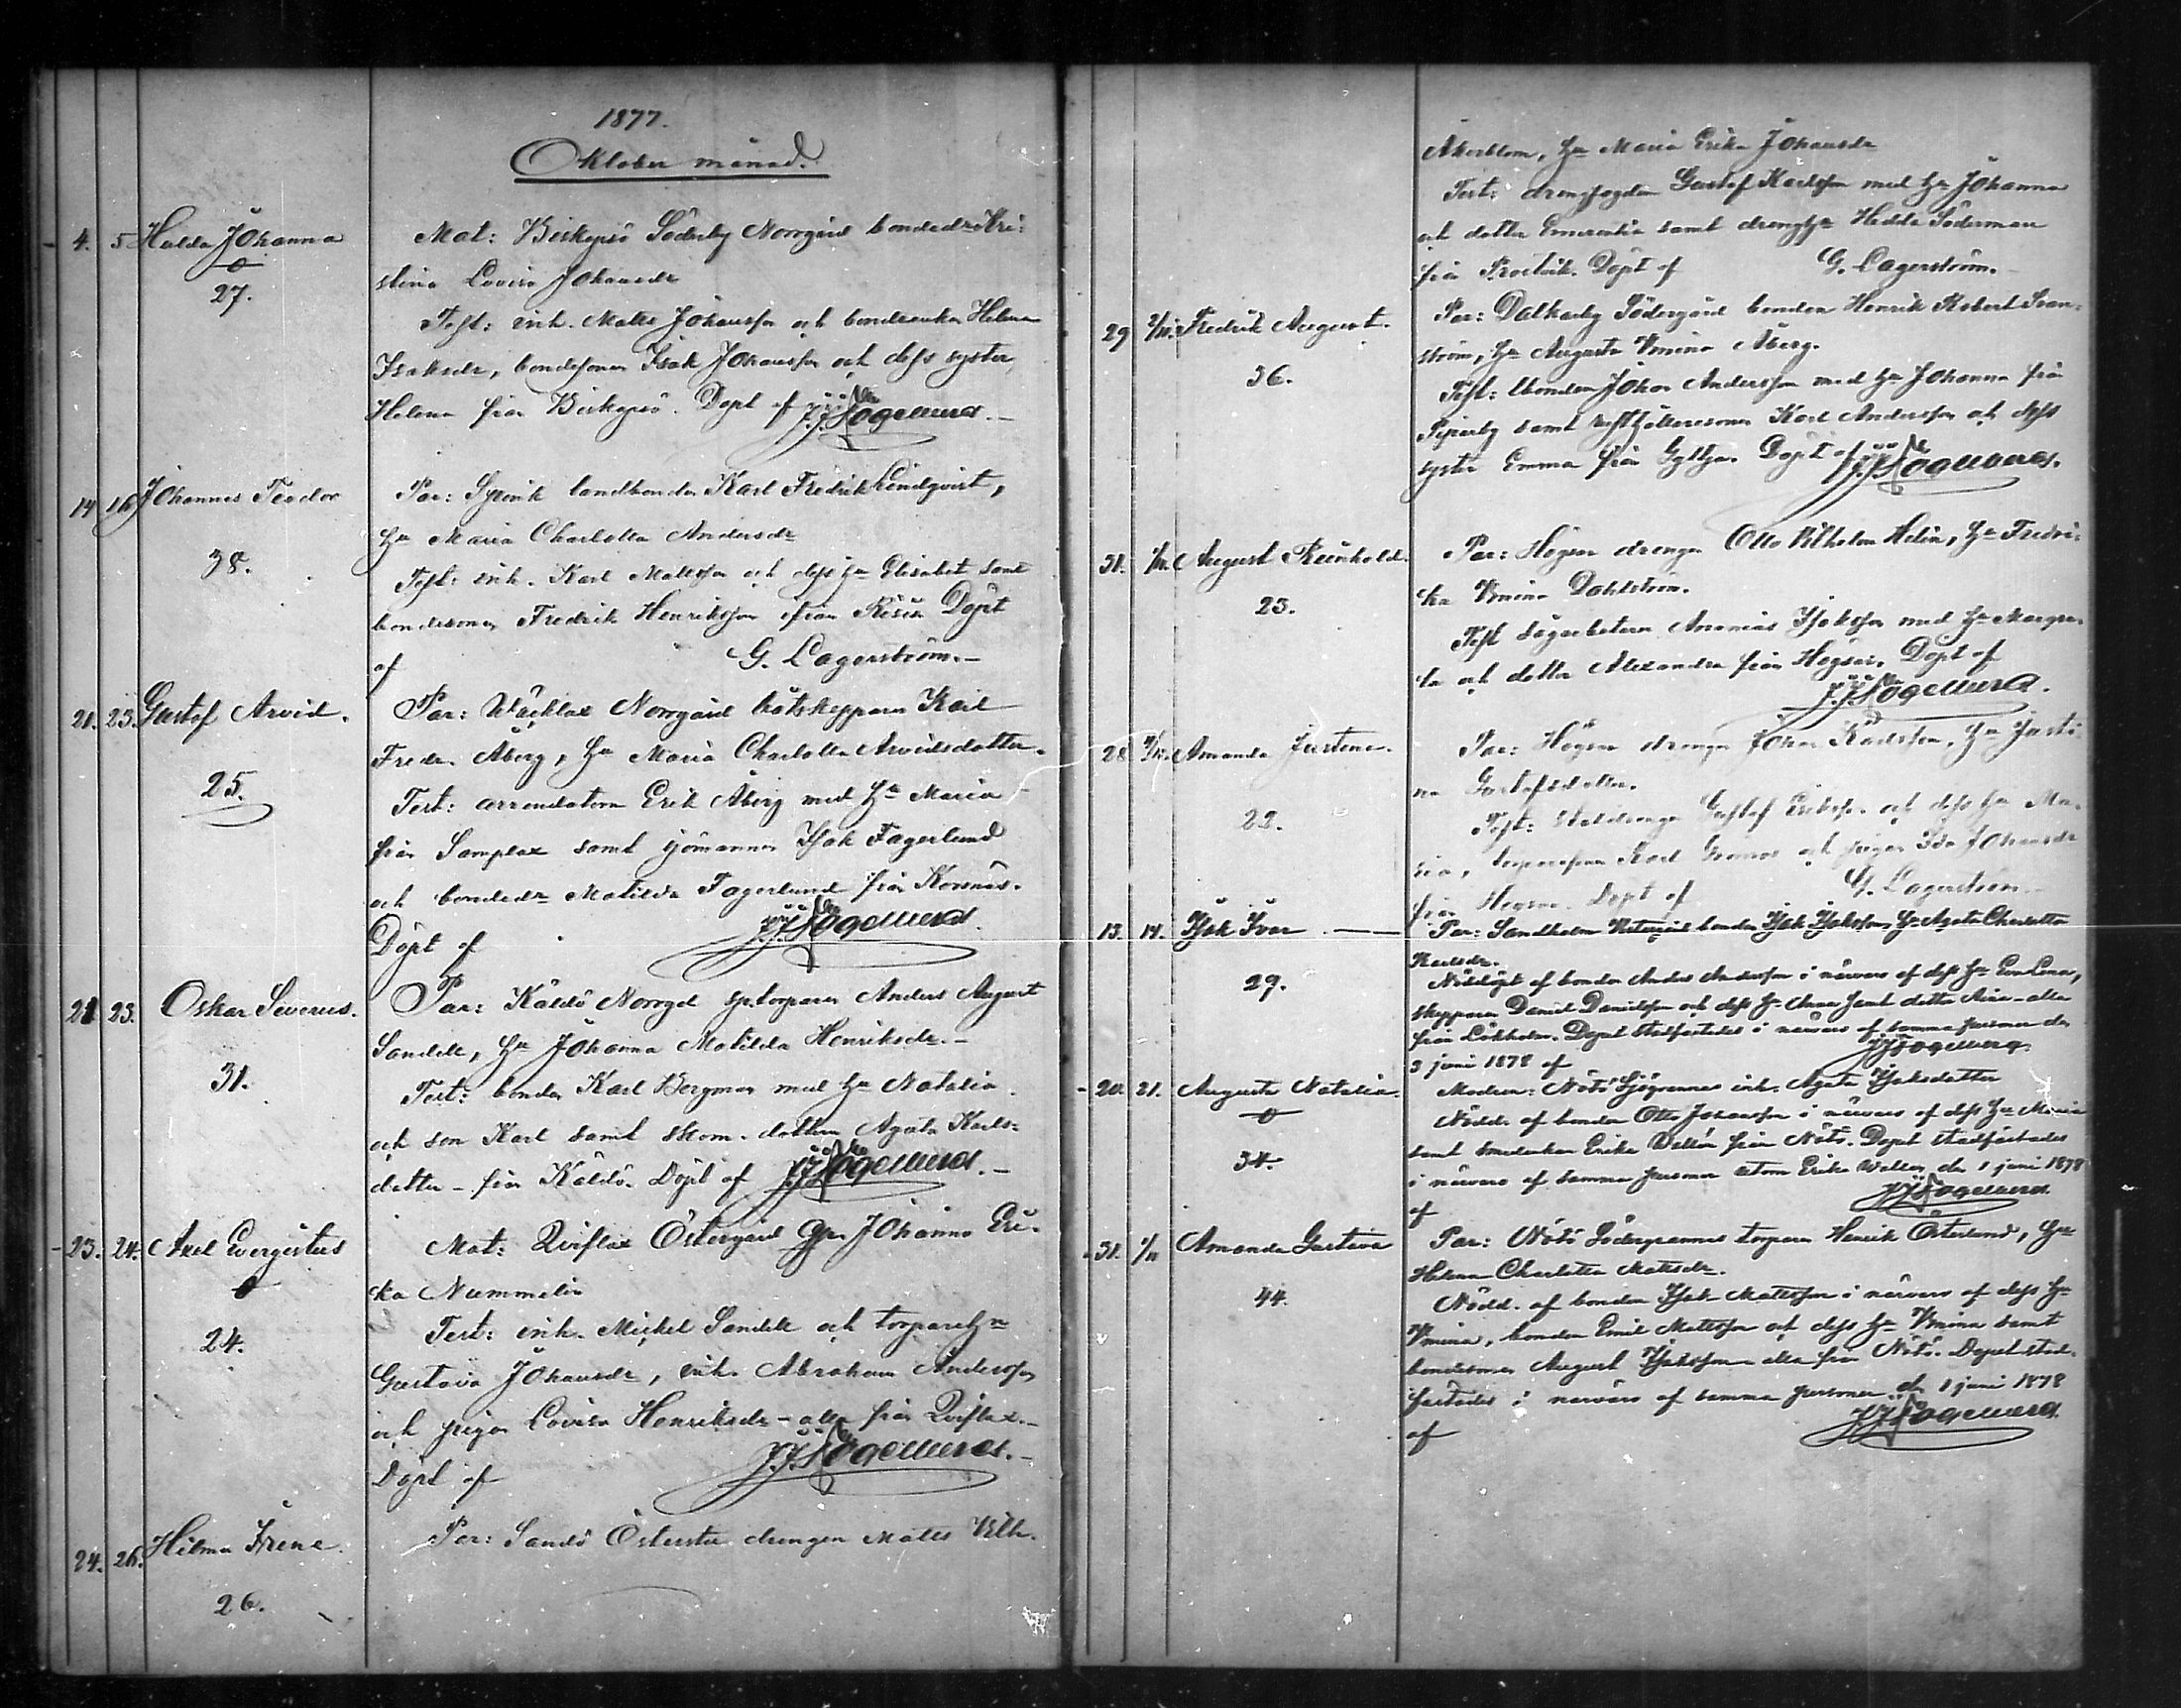 1877.
Oktober månad.
4. 5 Hulda Johanna
27.
Mat: Birkopsö Söderby Norrgård bondedr Kri-
stina Lovisa Johansdr
Test: inh. Matts Johansson och bondeenkan Helena
Isaksdr, bondesonen Isak Johansson och dess syster
Helena från Birkopsö. Döpt af J.J. Fogellund.
14 16 Johannes Teodor
38.
Par: landbonden Karl Fredrik Lindqvist,
hu Maria Charlotta Andersdr
Test: inh. Karl Mattsson och dess hu Elisabet samt
bondesonen Fredrik Henriksson ifrån Döpt
af G. Lagerström.
21. 23. Gustof Arvid.
25.
Par: Norrgård båtskepparen Karl
Fredr. Åberg, hu Maria Charlotta Arvidsdotter.
Test: arrendatorn Erik Åberg med hu Maria
från Samplax samt sjömannen Isak Fagerlund
och bondedr Matilda Fagerlund från Korsnäs.
Döpt af J.J. Fogellund
21 23. Oskar Severus.
31.
Par: Käldö Norrgd sp.torparen Anders August
Sandell, hu Johanna Matilda Henriksdr.
Test: bonden Karl Bergman med hu Natalia
och son Karl samt skom. dottern Agata Karls-
dotter - från Käldö. Döpt af J.J. Fogellund.
23. 24. Axel Evergistus
24.
Mat: Qviflax Östergård Johanna Eri-
ka Nummelin
Test: inh. Mickel Sandell och torparehn
Gustava Johansdr, inh. Abraham Andersson
och pigan Lovisa Henriksdr - alla från Qviflax.
Döpt af J.J. Fogellund.
24. 26. Hilma Irene.
26.
Par: Sandö Österstu drengen Matts Vilh.
Åkerblom, hu Maria Erika Johansdr
Test: drengfogden Gustaf Karlsson med hu Johanna
och dotter Emerentia samt drenghu Hedda Söderman
från Prostvik. Döpt af G. Lagerström.
29 2/11. Fredrik August.
36.
Par: Dalkarby Södergård bonden Henrik Robert Svan-
ström, hu Augusta Vmina Åberg.
Test: bonden Johan Andersson med hu Johanna från
Piparby samt rusthållaresonen Karl Andersson och dess
syster Emma från Gyttja. Döpt af J.J. Fogellund.
31. 1/11. August Reinhold.
25.
Par: Högsar drengen Otto Vilhelm Helin, hu Fredri-
ka Vmina Dahlström.
Test sågarbetaren Ananias Isaksson med hu Margre-
ta och dotter Alexandra från Högsar. Döpt af
J.J. Fogellund.
28 4/11. Amanda Justina.
22.
Par: Högsar drengen Johan Karlsson, hu Justi-
na Gustafsdotter.
Test: Gustaf Eriksson och dess hu Ma-
ria, torparesonen Karl och pigan Ida Johansdr
från Högsar. Döpt af G. Lagerström
13. 14. Isak Ivar
29.
Par: Sandholm Vestergård bonden Isak Isaksson, hu Agata Charlotta
Karlsdr.
Nöddöpt af bonden Anders Andersson i närvaro af dess hu Eva Lena,
skepparen Daniel Danielsson och dess hu Anna samt dotter Aina - alla
från Lökholm. Dopet stadfästades i närvaro af samma personer den
3 juni 1878 af J.J. Fogelund
20. 21. Augusta Natalia.
34.
Modern: Nötö Sjögrannas inh. Agata Isaksdotter
Nödd. af bonden Otto Johansson i närvaro af dess hu Maria
samt smedenkan Erika Wellén från Nötö. Dopet stadfästades
i närvaro af samma personer utom Erika Wellén den 1 juni 1878
af J.J. Fogelund.
31. 1/11 Amanda Gustava
44.
Par: Nötö Södergrannas torparen Henrik Österlund, hu
Helena Charlotta Mattsdr.
Nödd. af bonden Isak Mattsson i närvaro af dess hu
Vmina, bonden Emil Mattsson och dess hu Vmina samt
bondesonen August Isaksson alla från Nötö. Dopet stad-
fästades i närvaro af samma personer den 1 juni 1878
af J.J. Fogelund.